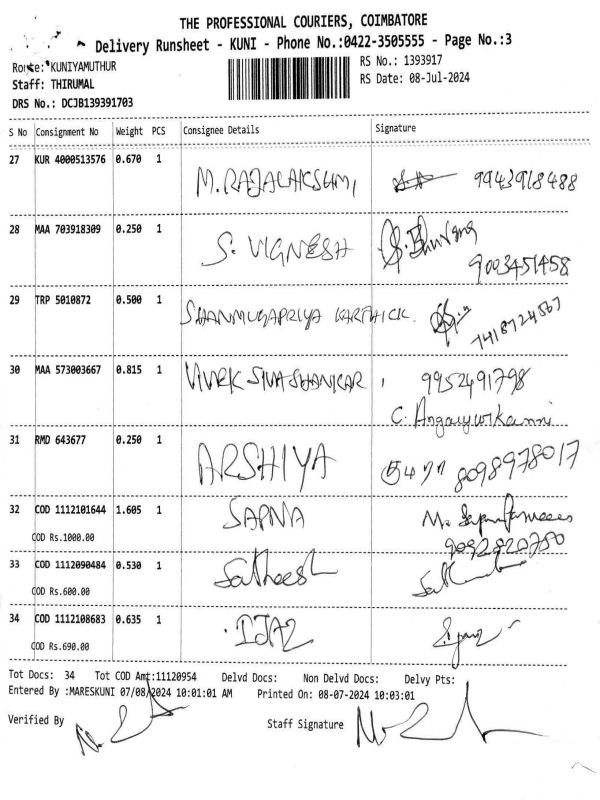 THE PROFESSIONAL COURIERS, COIMBATORE
Delivery Runsheet - KUNI - Phone No.:0422-3505555 - Page No.:3
Route: KUNIYAMUTHUR RS No.: 1393917
Staff: THIRUMAL RS Date: 08-Jul-2024
DRS No.: DCJB139391703
S No Consignment No Weight PCS Consignee Details Signature
27 KUR 4000513576 0.670 1 M. RAJALAKSHMI 9943918488
28 MAA 703918309 0.250 1 S. VIGNESH 9003451458
29 TRP 5010872 0.500 1 SHANMUGAPRIYA KARTHICK. 7418724567
30 MAA 573003667 0.815 1 VIVEK SIVASHANKAR, 9952491798
31 RMD 643677 0.250 1 ARSHIYA 8098978017
32 COD 1112101644 1.605 1 SAPNA
COD Rs.1000.00 9092820780
33 COD 1112090484 0.530 1 Satheesh
COD Rs.600.00
34 COD 1112108683 0.635 1 IJAZ
COD Rs.690.00
Tot Docs: 34 Tot COD Amt:11120954 Delvd Docs: Non Delvd Docs: Delvy Pts:
Entered By :MARESKUNI 07/08/2024 10:01:01 AM Printed On: 08-07-2024 10:03:01
Verified By Staff Signature